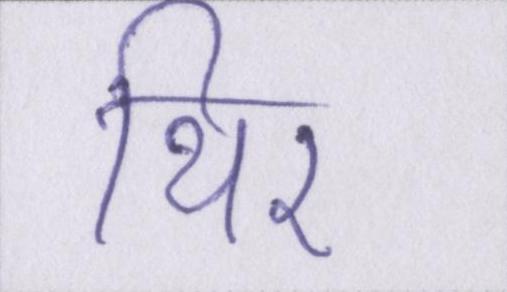 थिर